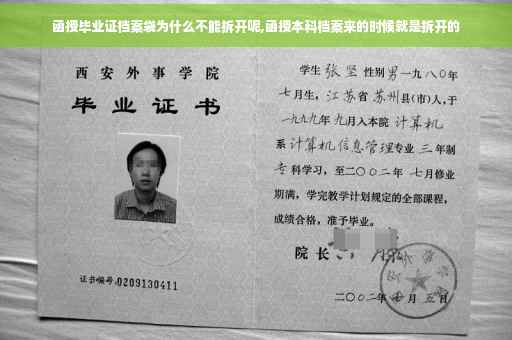 函授毕业证档案袋为什么不能拆开呢,函授本科档案来的时候就是拆开的
西安外事学院
毕业证书
证书编号:0209130411
学生 张坚 性别 男 一九八〇年
七月生, 江苏省 苏州 县(市)人, 于
一九九九年 九月入本院 计算机
系 计算机信息管理 专业 三 年制
专 科学习, 至二〇〇二年 七月修业
期满, 学完教学计划规定的全部课程,
成绩合格, 准予毕业。
院长
二〇〇二年 月五日